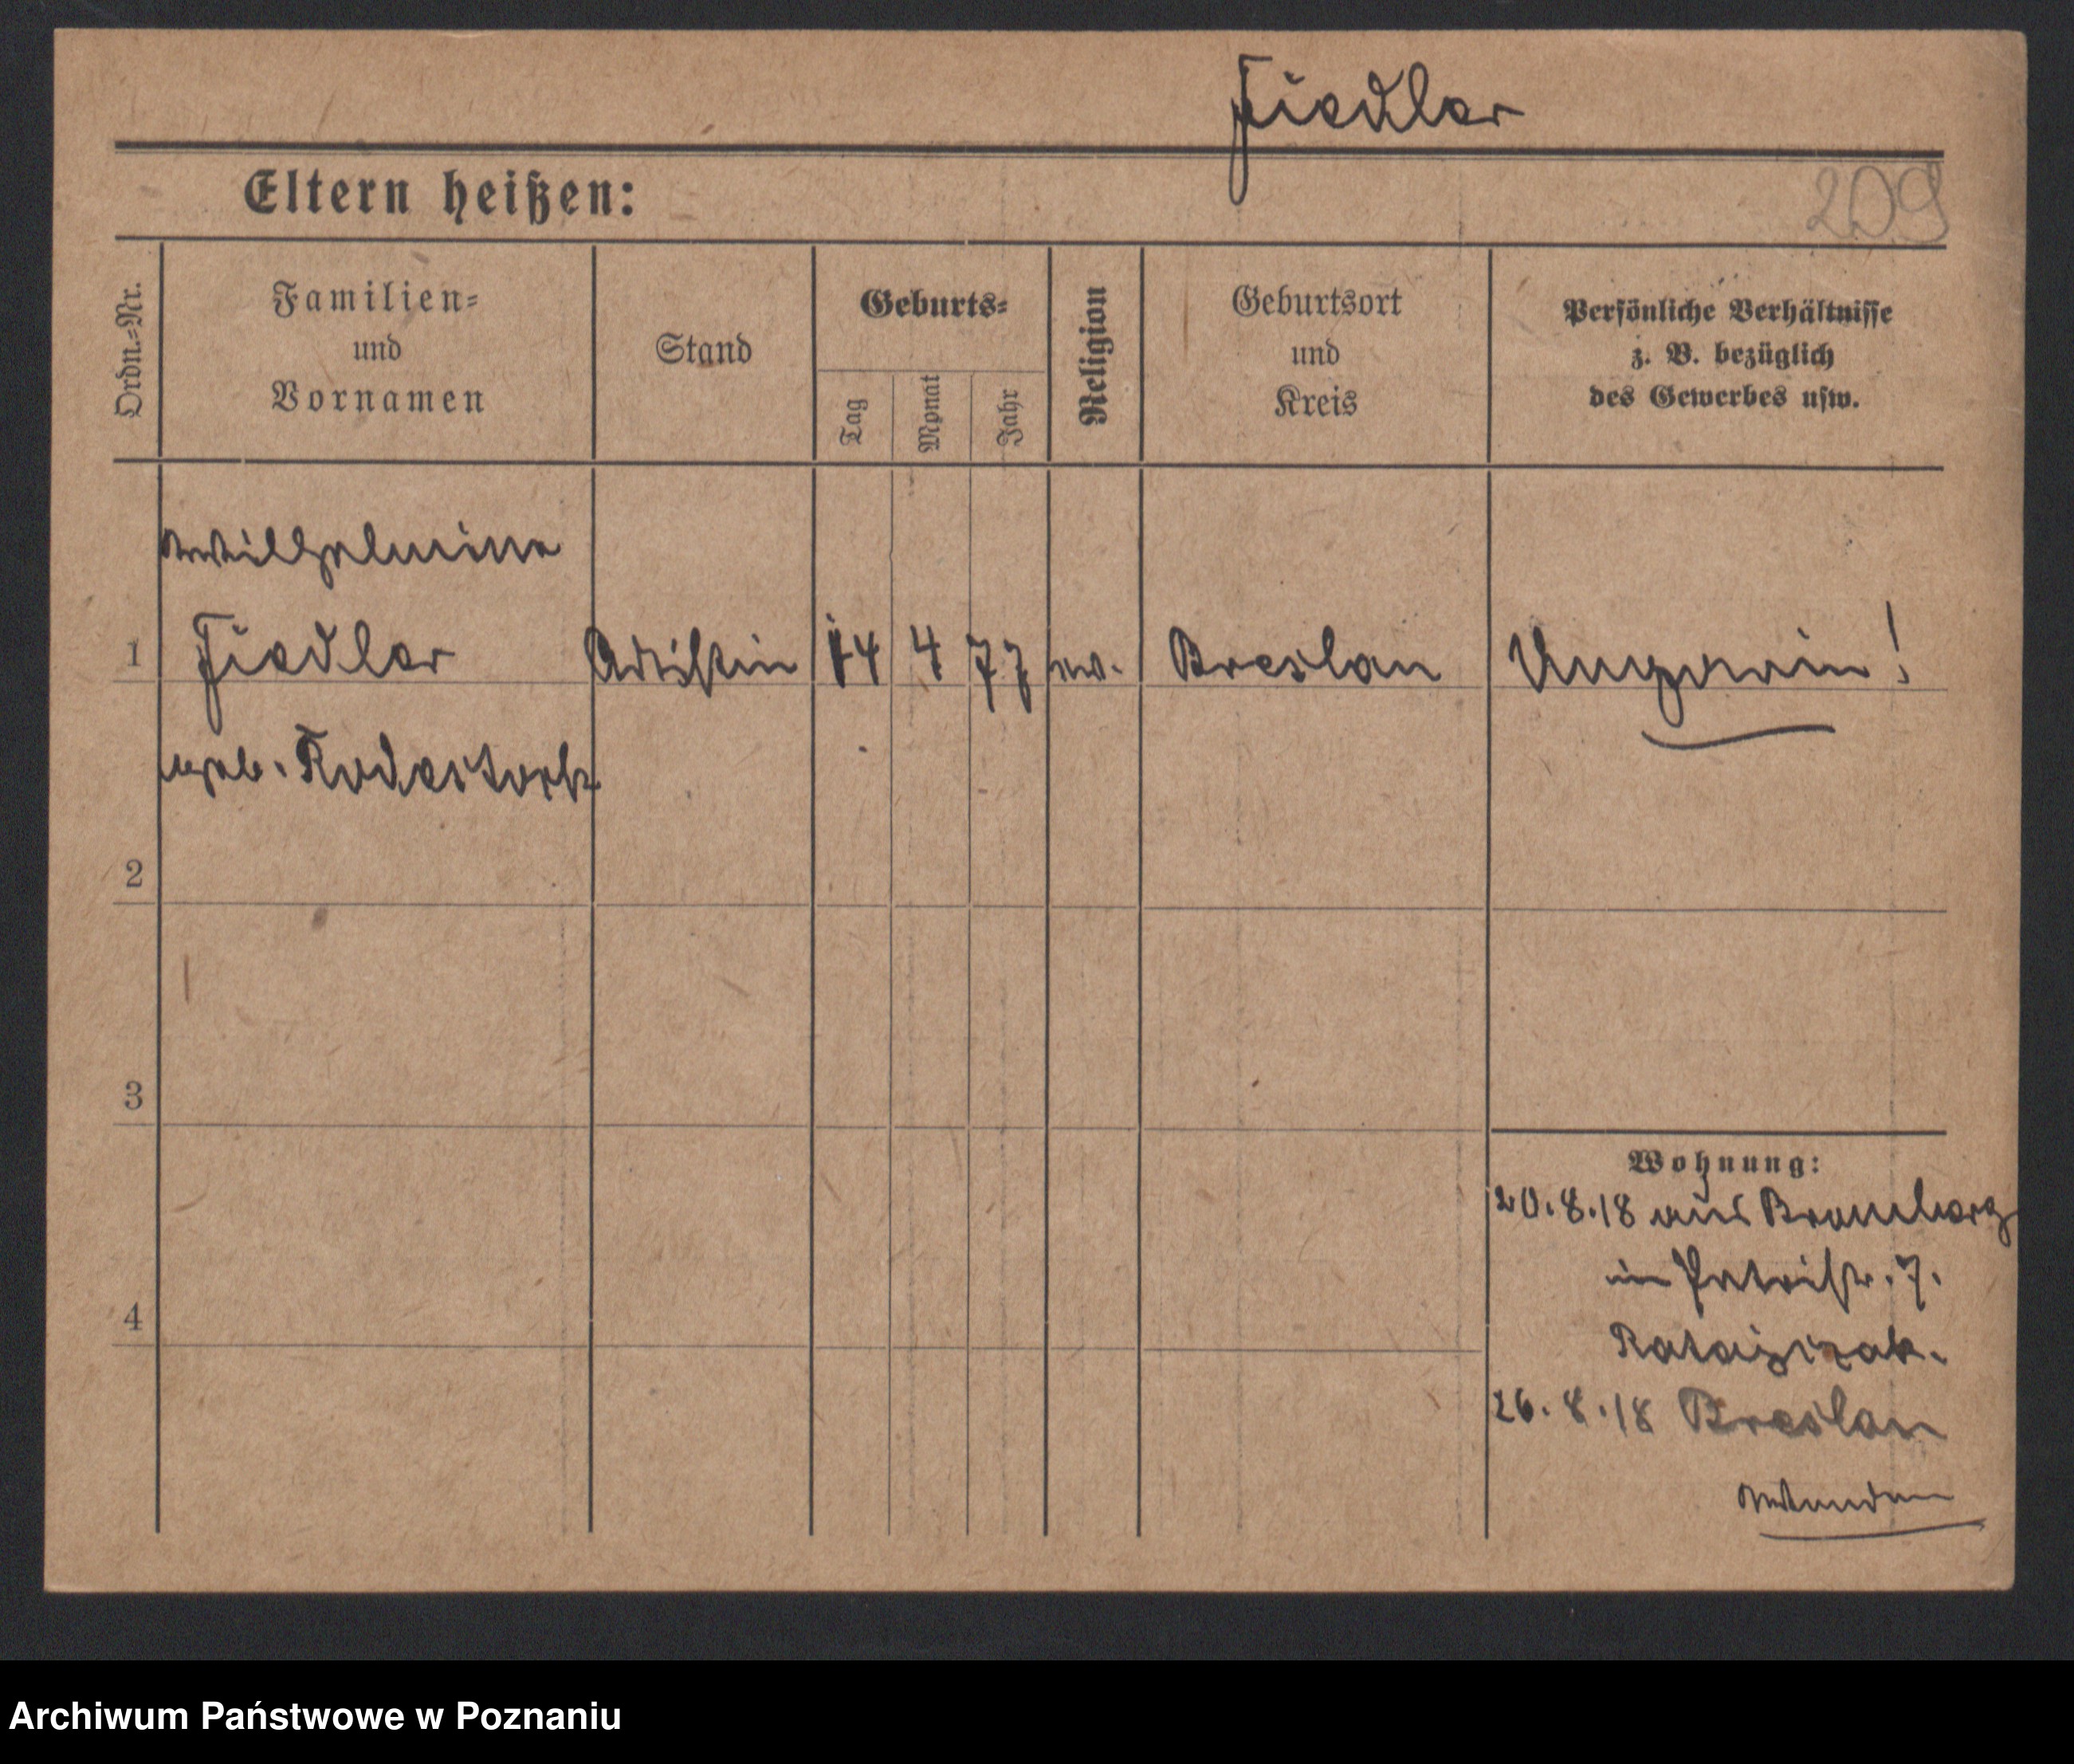 Fiedler
Eltern heißen:
209
Ordn.=Nr.
Familien=
und
Vornamen
Stand
Geburts=
Tag
Monat
Jahr
Religion
Geburtsort
und
Kreis
Persönliche Verhältnisse
z. B. bezüglich
des Gewerbes usw.
Wilhelmine
1 Fiedler Artistin 14 4 77 ev. Breslau Ungarin!
geb.
2
3
4
Wohnung:
20.8.18 aus Bromberg
in Petristr. 7.
Ratajczak.
26.8.18 Breslau